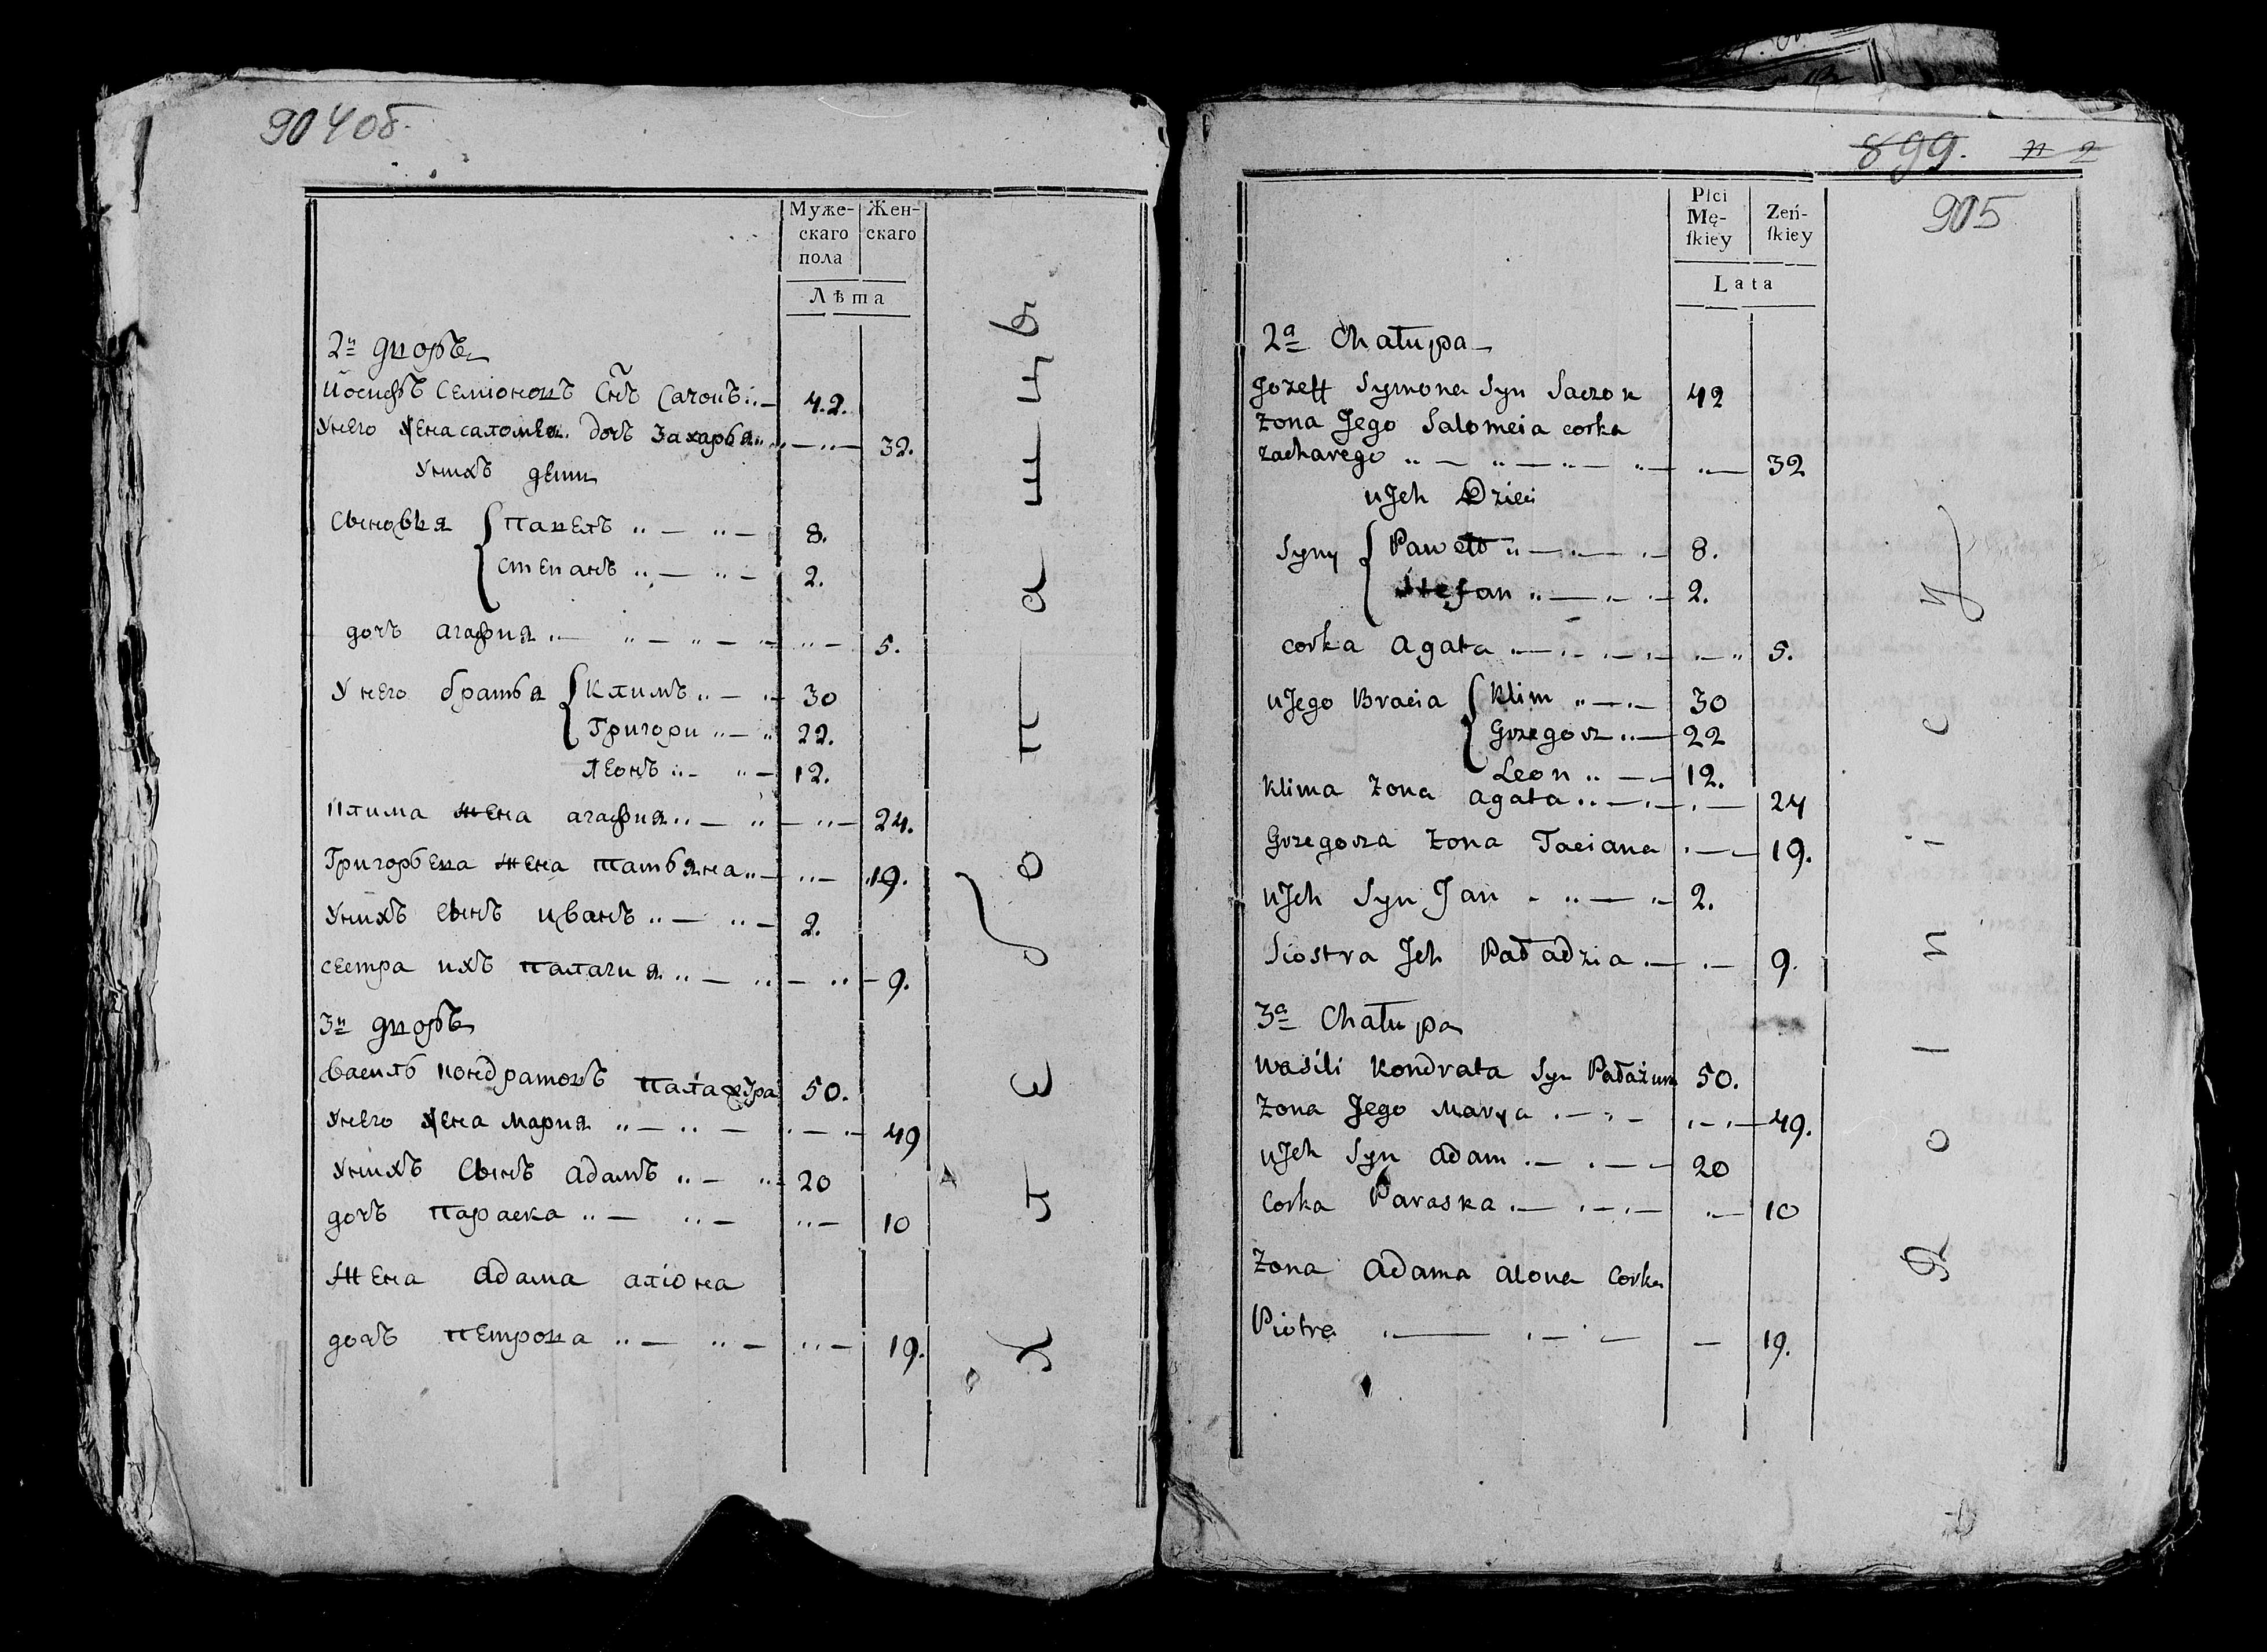 904 об.
Муже-
скаго
пола
Жен-
скаго
Лѣта
2й дворъ
Йосифъ Семіоновъ Снъ Сачокъ 42.
Унего жена саломея дочъ Захарья 32.
Унихъ дети
Сыновья { Павелъ 8.
Степанъ 2.
дочъ агафия 5.
Унего братья { Климъ 30
Григори 22.
Леонъ 12.
Клима жена агафия 24.
Григорьева жена татьяна 19.
Унихъ Сынъ иванъ 2.
сестра ихъ палагия 9.
3й дворъ
василь кондратовъ 50.
Унего жена мария 49
Унихъ Сынъ адамъ 20
дочъ параска 10
Жена адама аліона
дочъ петрова 19.
Хлебопашцы
899. n 2
905
Płci
Mę-
ſkiey
Zeń-
ſkiey
Lata
2a Chałupa
Jozeff Symona Syn Saczok 42
żona Jego Salomeia corka
zacharego 32
uJch Dzieci
Syny { Paweł 8.
Stefan 2.
corka agata 5.
uJego Bracia { Klim 30
Grzegorz 22
Leon 12.
Klima żona agata 24
Grzegorza żona Taciana 19.
uJch Syn Jan 2.
Siostra Jch Paładzia 9.
3a Chałupa
wasili Kondrata Syn 50.
żona Jego Marya 49.
uJch Syn adam 20
Corka Paraska 10
żona adama alona Corka
Piotra 19.
Rolnicy